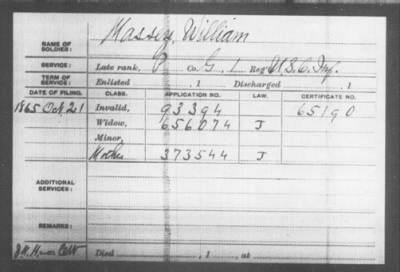 NAME OF SOLDIER: Massey, William
SERVICE: Late rank, P Co. G, 1, Reg't U.S.C. Inf.
TERM OF SERVICE: Enlisted , 1 Discharged , 1
DATE OF FILING. CLASS. APPLICATION NO. LAW. CERTIFICATE NO.
1865 Oct 21 Invalid, 93394 65190
Widow, 656074 J
Minor,
Mother 373544 J
ADDITIONAL SERVICES:
REMARKS:
Died , 1 , at